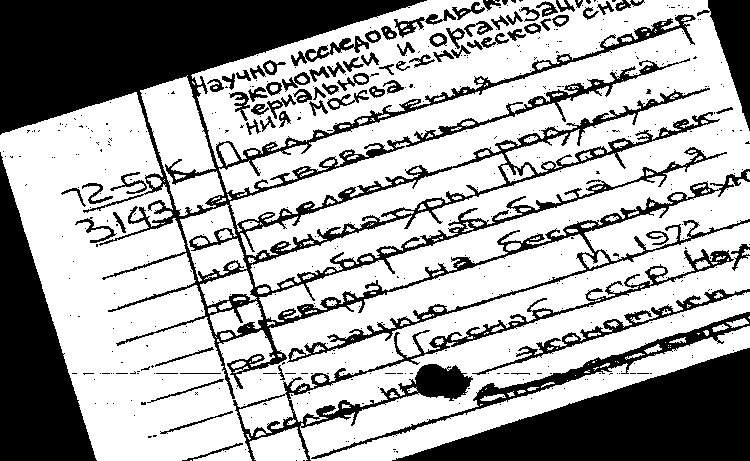 Научно-исследовательский
экономики и организации
териально-технического снаб
ния. Москва.
Предложения по совер-
72-5дк шенствованию порядка
3143 определения продукции
номенклатуры Мосгорэлек
троприборснабсбыта для
перевода на бесфондовую
реализацию. М., 1972.
60с. (Госснаб СССР. Науч
исслед. ин экономики